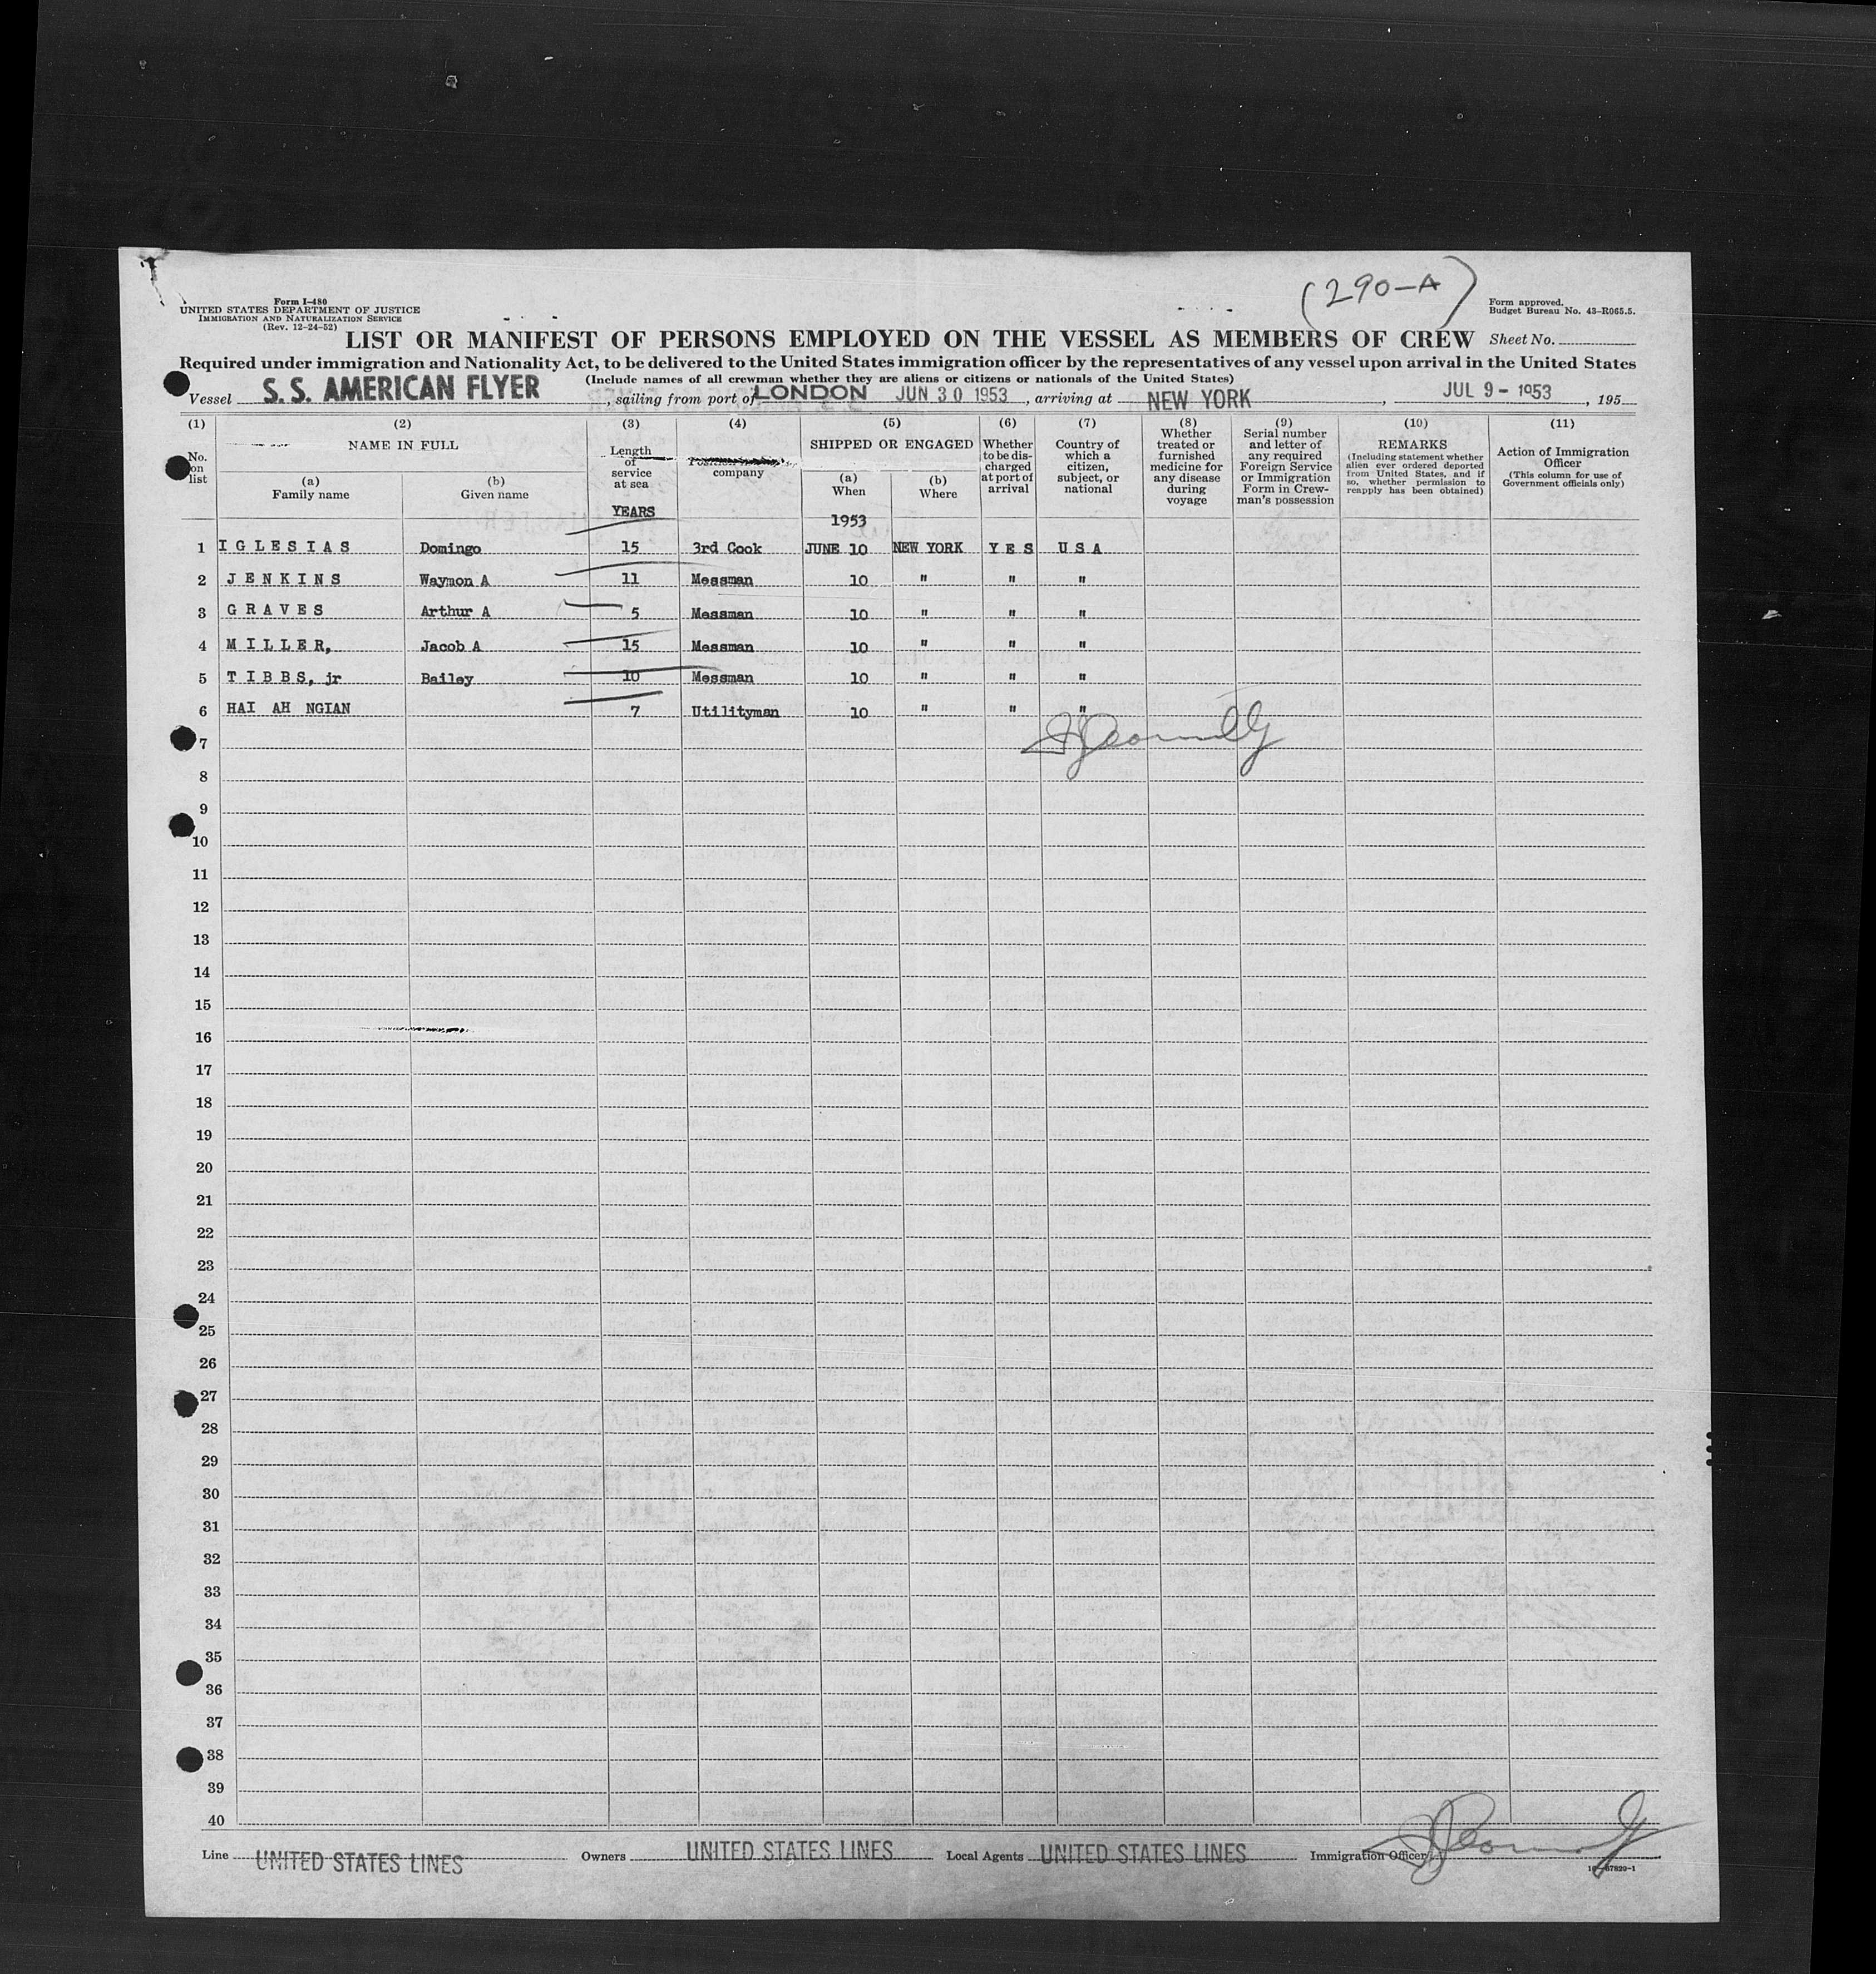 (290-A)
Form I-480
UNITED STATES DEPARTMENT OF JUSTICE
IMMIGRATION AND NATURALIZATION SERVICE
(Rev. 12-24-52)
Form approved.
Budget Bureau No. 43-R065.5.
LIST OR MANIFEST OF PERSONS EMPLOYED ON THE VESSEL AS MEMBERS OF CREW Sheet No.
Required under immigration and Nationality Act, to be delivered to the United States immigration officer by the representatives of any vessel upon arrival in the United States
(Include names of all crewman whether they are aliens or citizens or nationals of the United States)
Vessel S. S. AMERICAN FLYER, sailing from port of LONDON JUN 30 1953, arriving at NEW YORK, JUL 9 - 1953, 195
(1) (2) (3) (4) (5) (6) (7) (8) (9) (10) (11)
No. on list
NAME IN FULL
(a) Family name
(b) Given name
Length of service at sea
company
SHIPPED OR ENGAGED
(a) When
(b) Where
Whether to be discharged at port of arrival
Country of which a citizen, subject, or national
Whether treated or furnished medicine for any disease during voyage
Serial number and letter of any required Foreign Service or Immigration Form in Crewman's possession
REMARKS
(Including statement whether alien ever ordered deported from United States, and if so, whether permission to reapply has been obtained)
Action of Immigration Officer
(This column for use of Government officials only)
YEARS 1953
1 IGLESIAS Domingo 15 3rd Cook JUNE 10 NEW YORK YES USA
2 JENKINS Waymon A 11 Messman 10 " " "
3 GRAVES Arthur A 5 Messman 10 " " "
4 MILLER, Jacob A 15 Messman 10 " " "
5 TIBBS, jr Bailey 10 Messman 10 " " "
6 HAI AH NGIAN 7 Utilityman 10 " " "
7
8
9
10
11
12
13
14
15
16
17
18
19
20
21
22
23
24
25
26
27
28
29
30
31
32
33
34
35
36
37
38
39
40
Line UNITED STATES LINES Owners UNITED STATES LINES Local Agents UNITED STATES LINES Immigration Officer